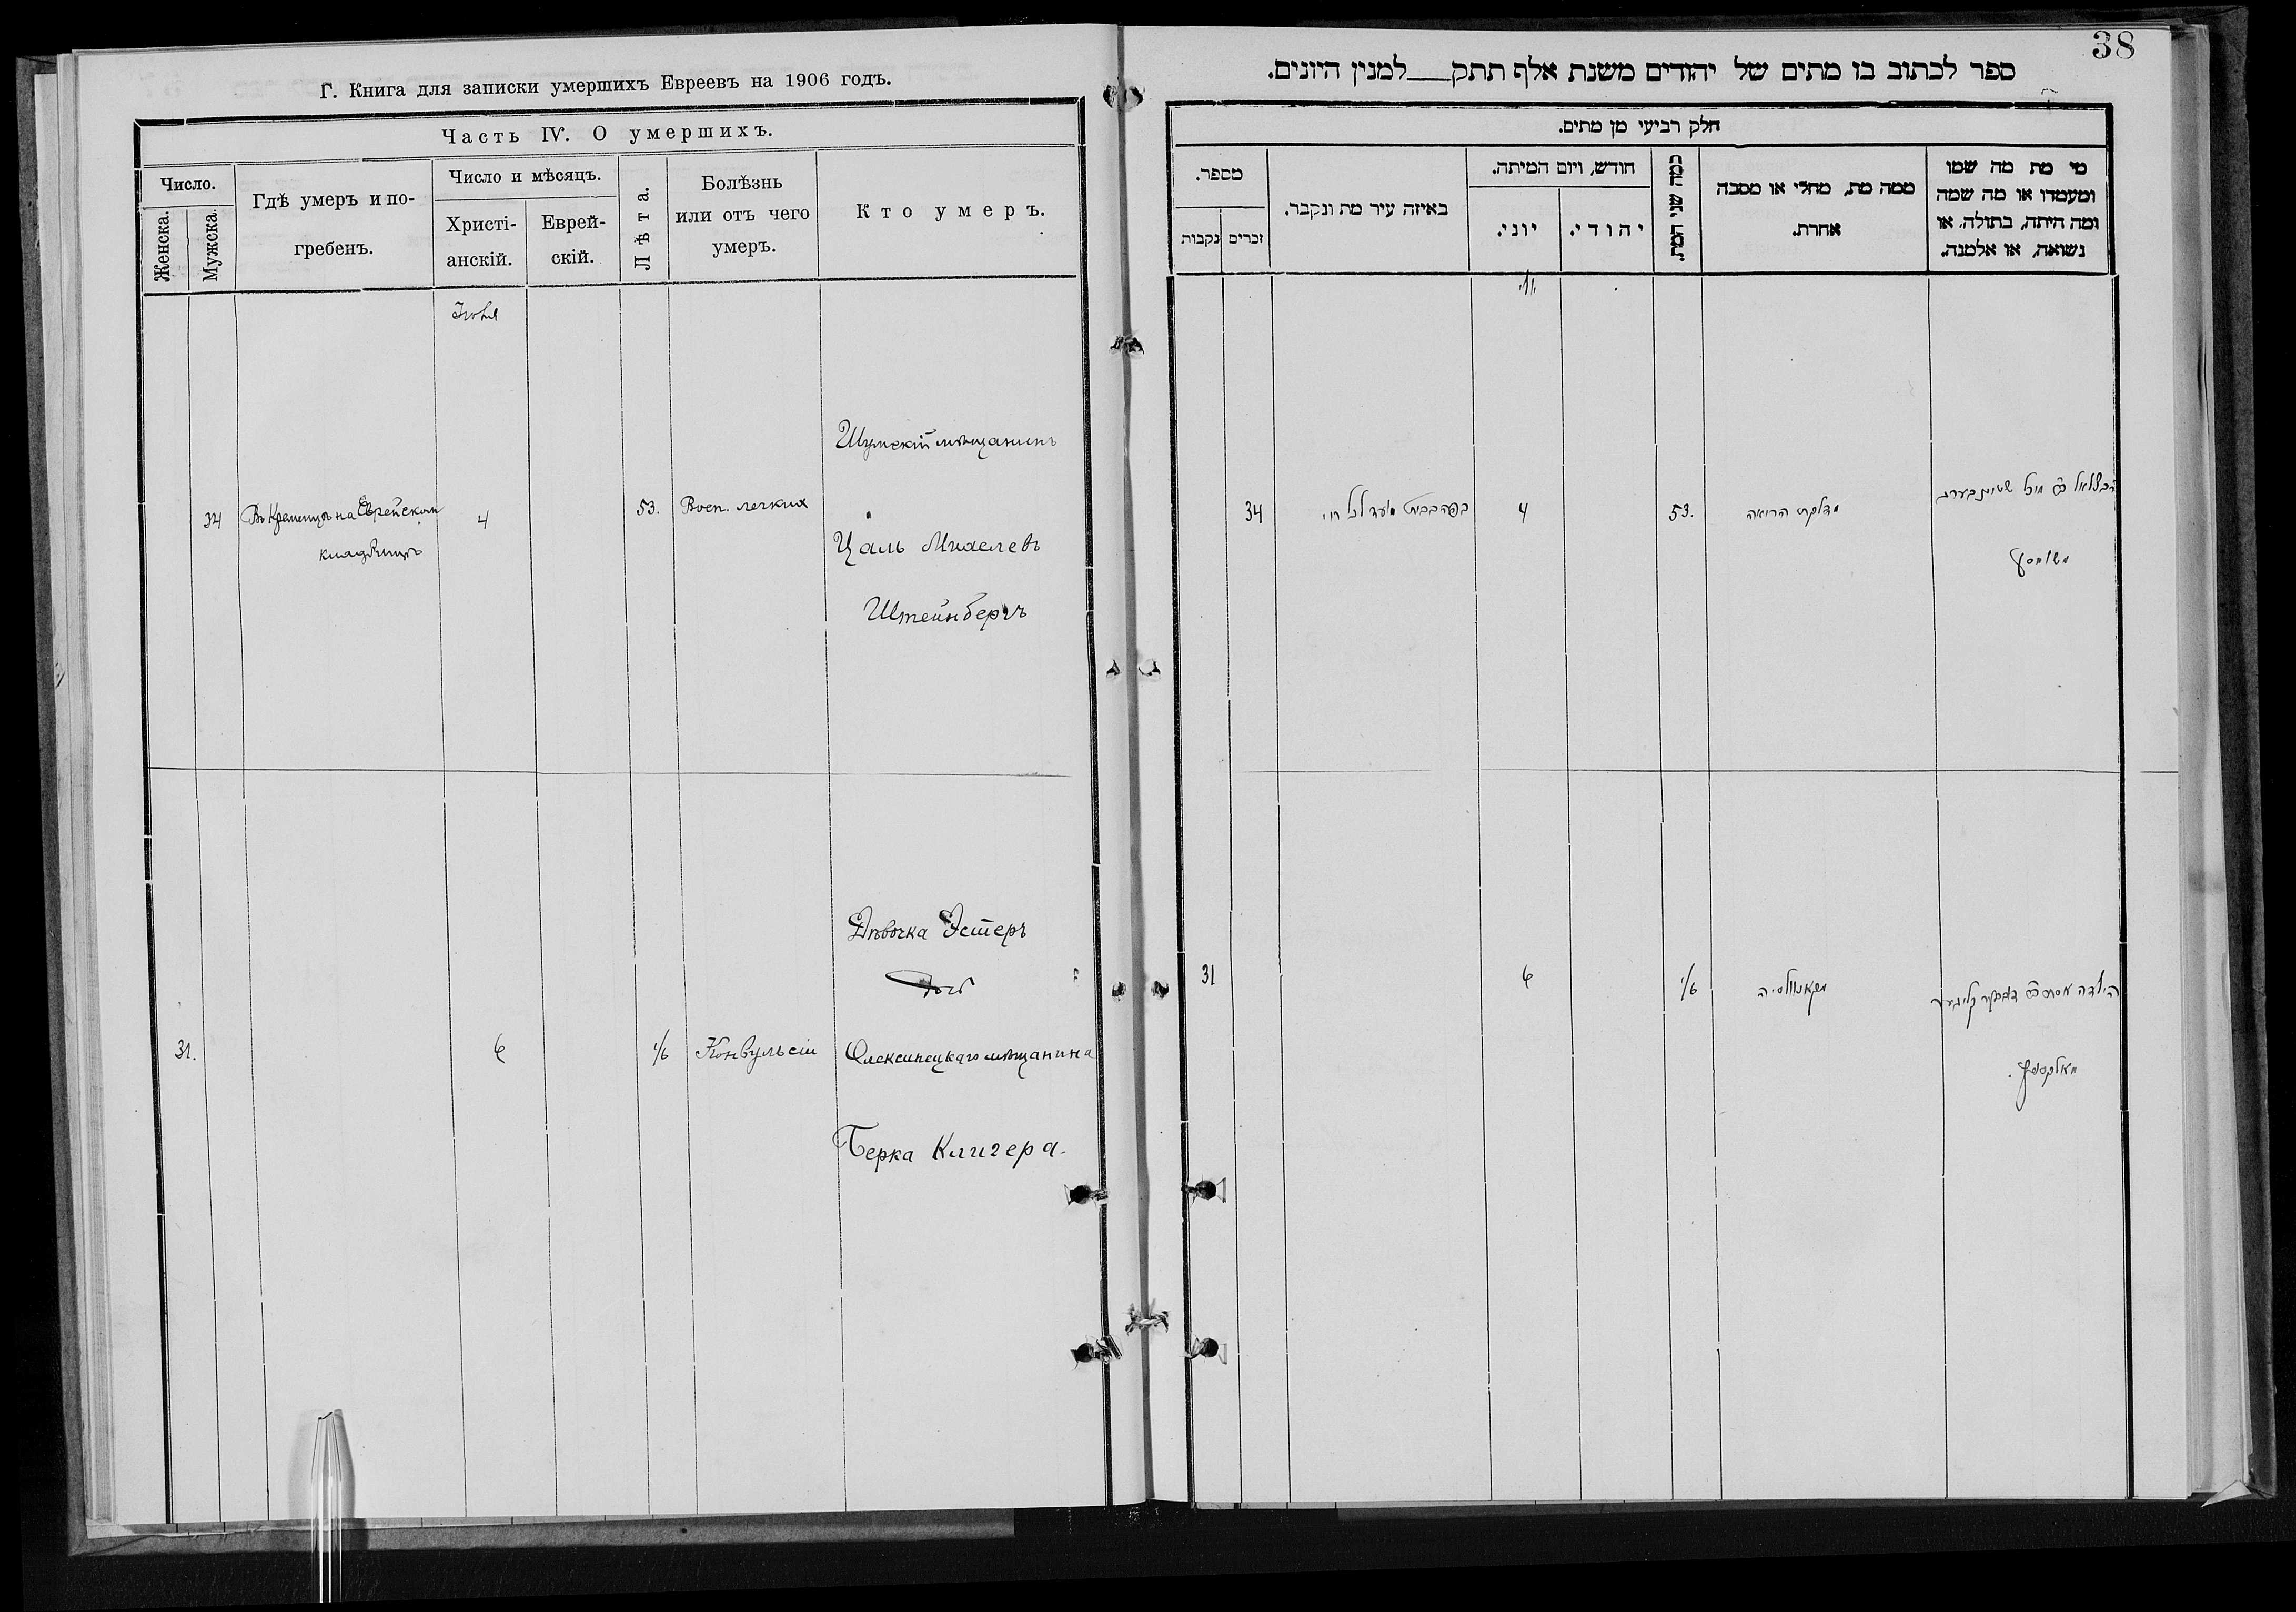 Г. Книга для записки умершихъ Евреевъ на 1906 годъ.
Часть IV. О умершихъ.
Число.
Женска.
Мужска.
Гдѣ умеръ и по-
гребенъ.
Число и мѣсяцъ.
Христі-
анскій.
Еврей-
скій.
Лѣта.
Болѣзнь
или отъ чего
умеръ.
Кто умеръ.
Іюня
Шумскій мѣщанинъ
34 Въ Кременцѣ на Еврейском 4 53. Восп. легких
кладбищѣ
Цаль
Штейнбергъ
Дѣвочка Эстеръ
дочь
31. 6 1/6 Конвульсіи Олексинецкаго мѣщанина
Берка Клигера.
38
ספר לכתוב בו מתים של יהודים משנת אלף תתק למנין היונים.
חלק רביעי מן מתים.
מספר.
נקבות
זכרים
באיזה עיר מת ונקבר.
חודש, ויום המיתה.
יוני.
יהודי.
כמה שני המת.
ממה מת, מחלי או מסבה
אחרת.
מי מת מה שמו
ומעמדו או מה שמה
ומה היתה, בתולה, או
נשואה, או אלמנה.
34
4
53.
דלקת הריאה
שטיינבערג
31
6
1/6
הילדה אסתר